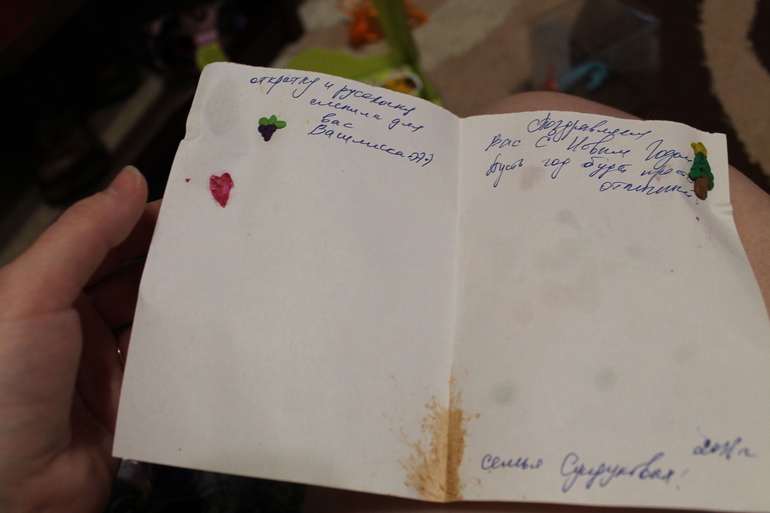 открытку и русалочку
слепила для
вас
Василисса
Поздравляем
Вас с Новым Годом
Пусть год будет просто
отличным!
2018 г
семья Сундуковых!